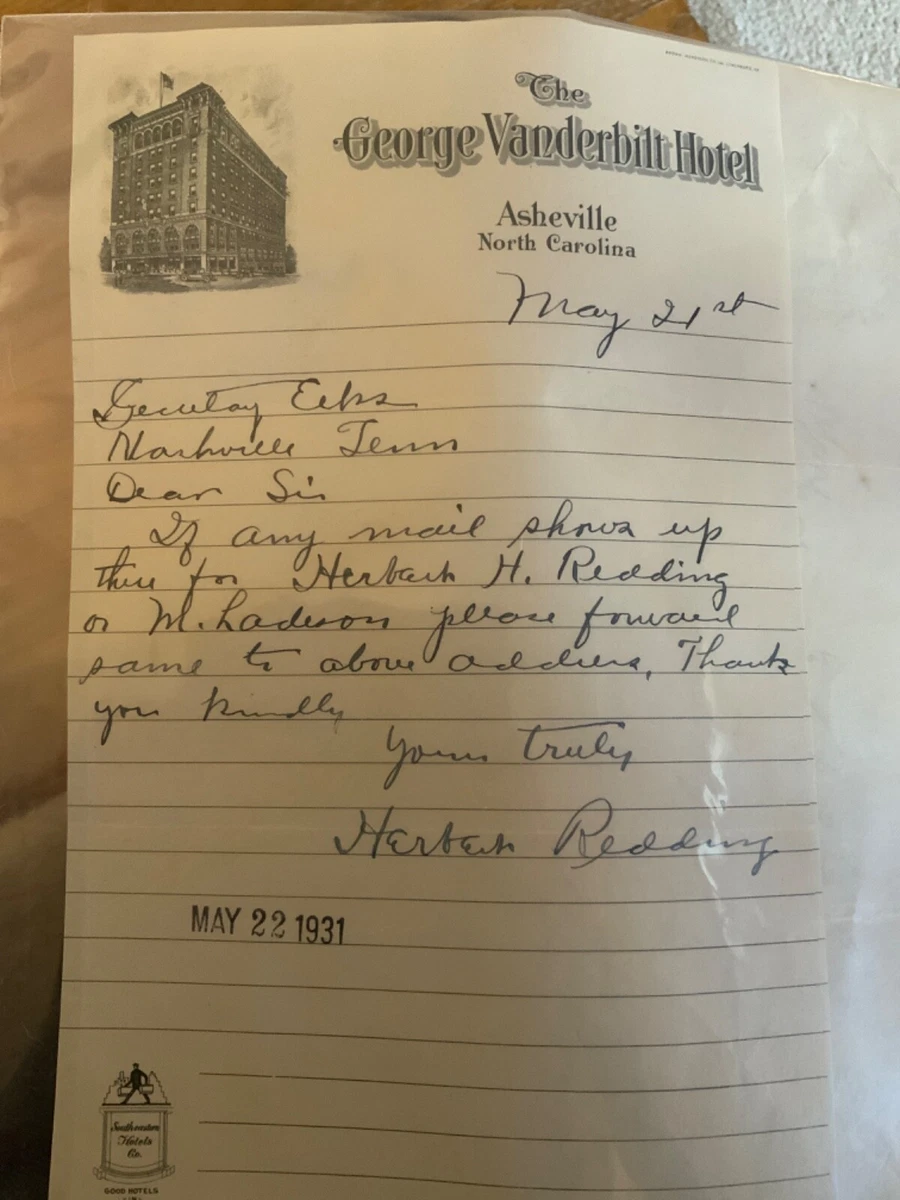 The
George Vanderbilt Hotel
Asheville
North Carolina
May 21st
Secretary Elks
Nashville Tenn
Dear Sir
If any mail shows up
there for Herbert H. Redding
or M. please forward
same to above address, Thank
you kindly
Yours truly
Herbert Redding
MAY 22 1931
Southeastern
Hotels
Co.
GOOD HOTELS